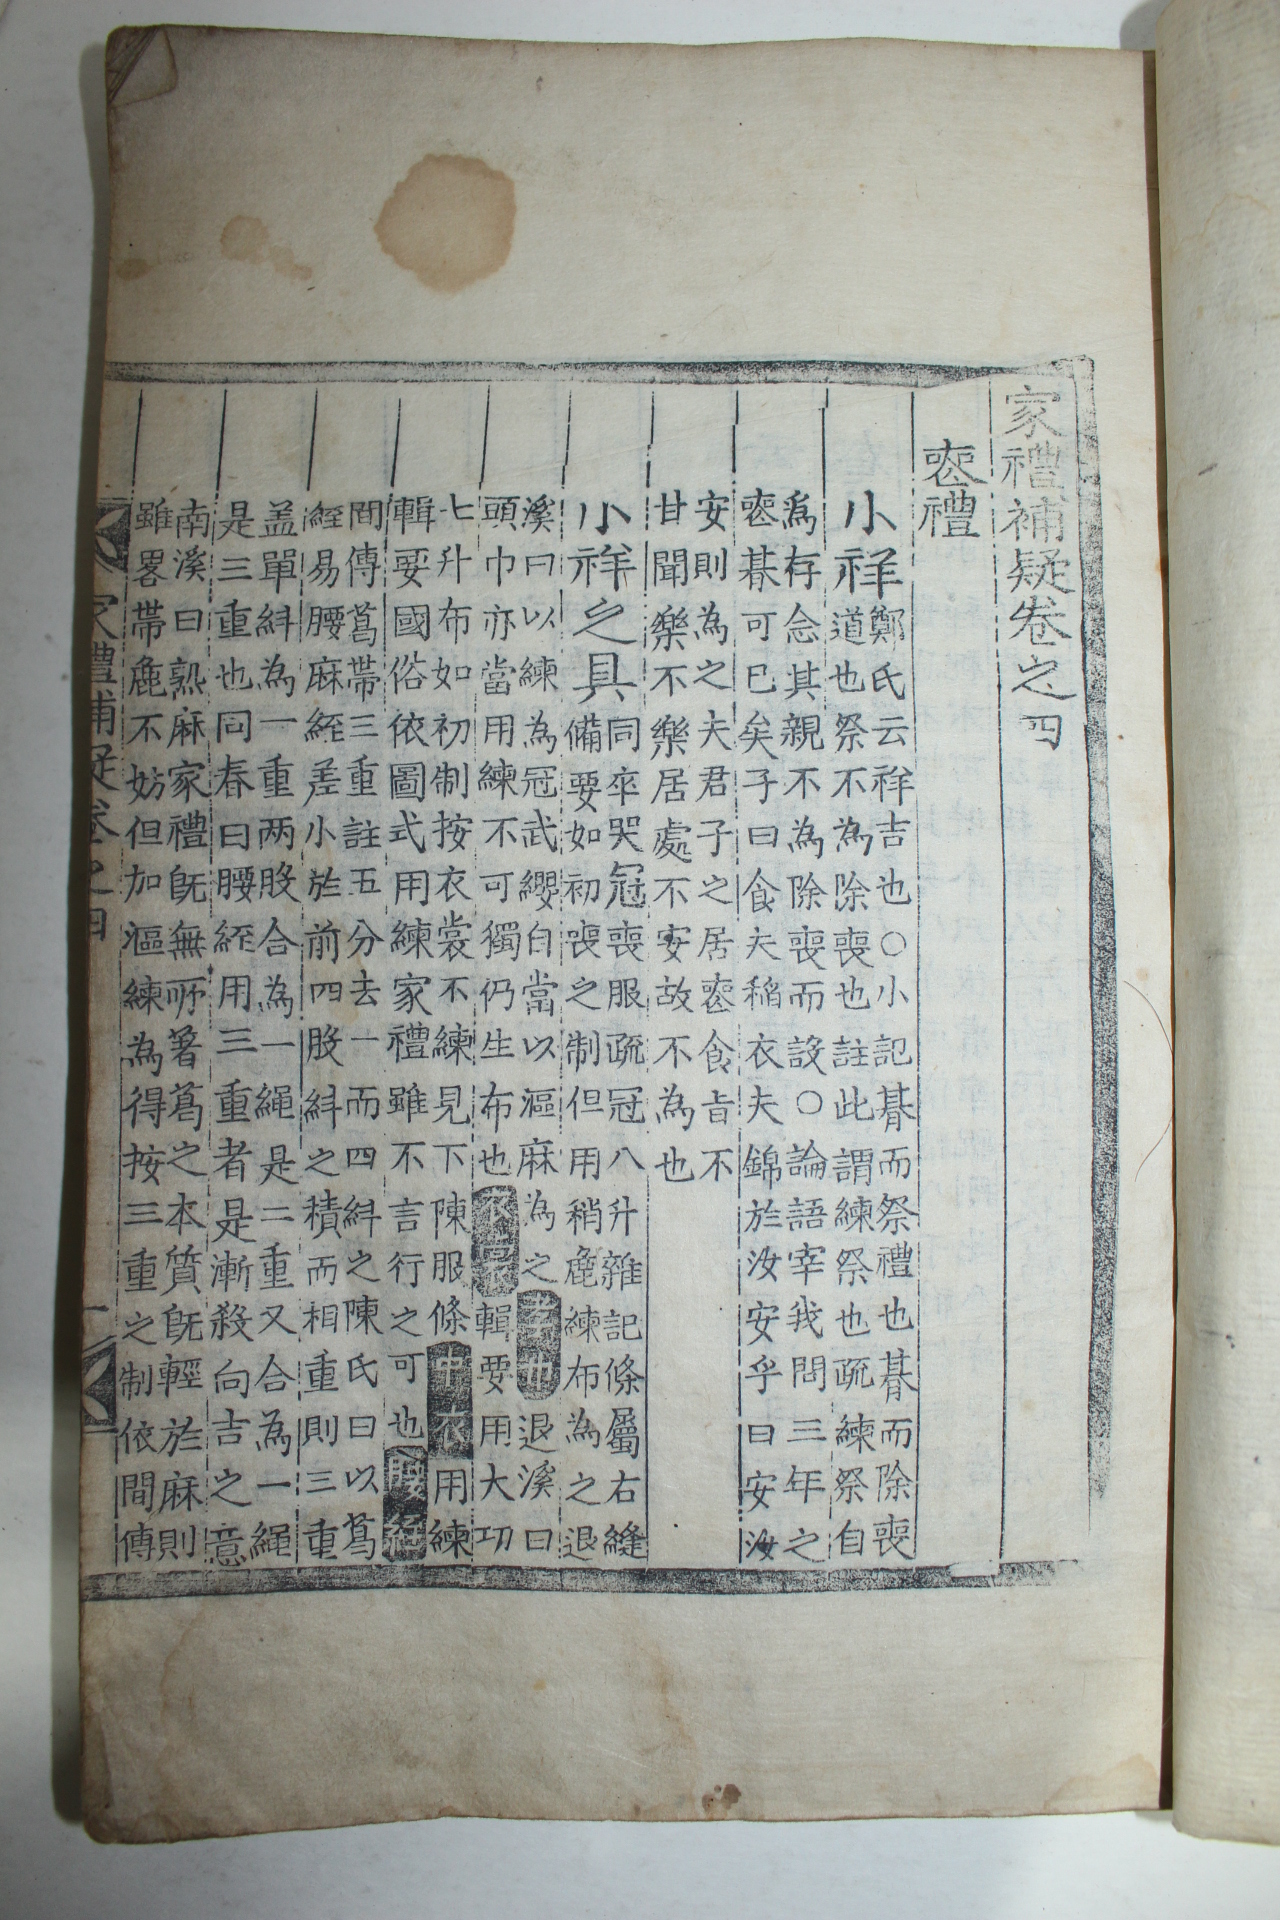 家禮補疑卷之四
喪禮
小祥
鄭氏云祥吉也○小記朞而祭禮也朞而除喪
道也祭不為除喪也註此謂練祭也疏練祭自
爲存念其親不為除喪而設○論語宰我問三年之
喪朞可已矣子曰食夫稻衣夫錦於汝安乎曰安汝
安則為之夫君子之居喪食旨不
甘聞樂不樂居處不安故不為也
小祥之具
同卒哭冠喪服疏冠八升雜記條屬右縫
備要如初喪之制但用稍麁練布為之退
溪曰以練為冠武纓自當以漚麻為之孝巾退溪曰
頭巾亦當用練不可獨仍生布也衣裳輯要用大功
七升布如初制按衣裳不練見下陳服條中衣用練
輯要國俗依圖式用練家禮雖不言行之可也腰絰
間傳葛帶三重註五分去一而四糾之陳氏曰以葛
絰易腰麻絰差小於前四股糾之積而相重則三重
盖單糾為一重两股合為一繩是二重又合為一繩
是三重也同春曰腰絰用三重者是漸殺向吉之意
南溪曰熟麻家禮旣無所著葛之本質旣輕於麻則
雖畧帶麁不妨但加漚練為得按三重之制依間傳
家禮補疑卷之四
一